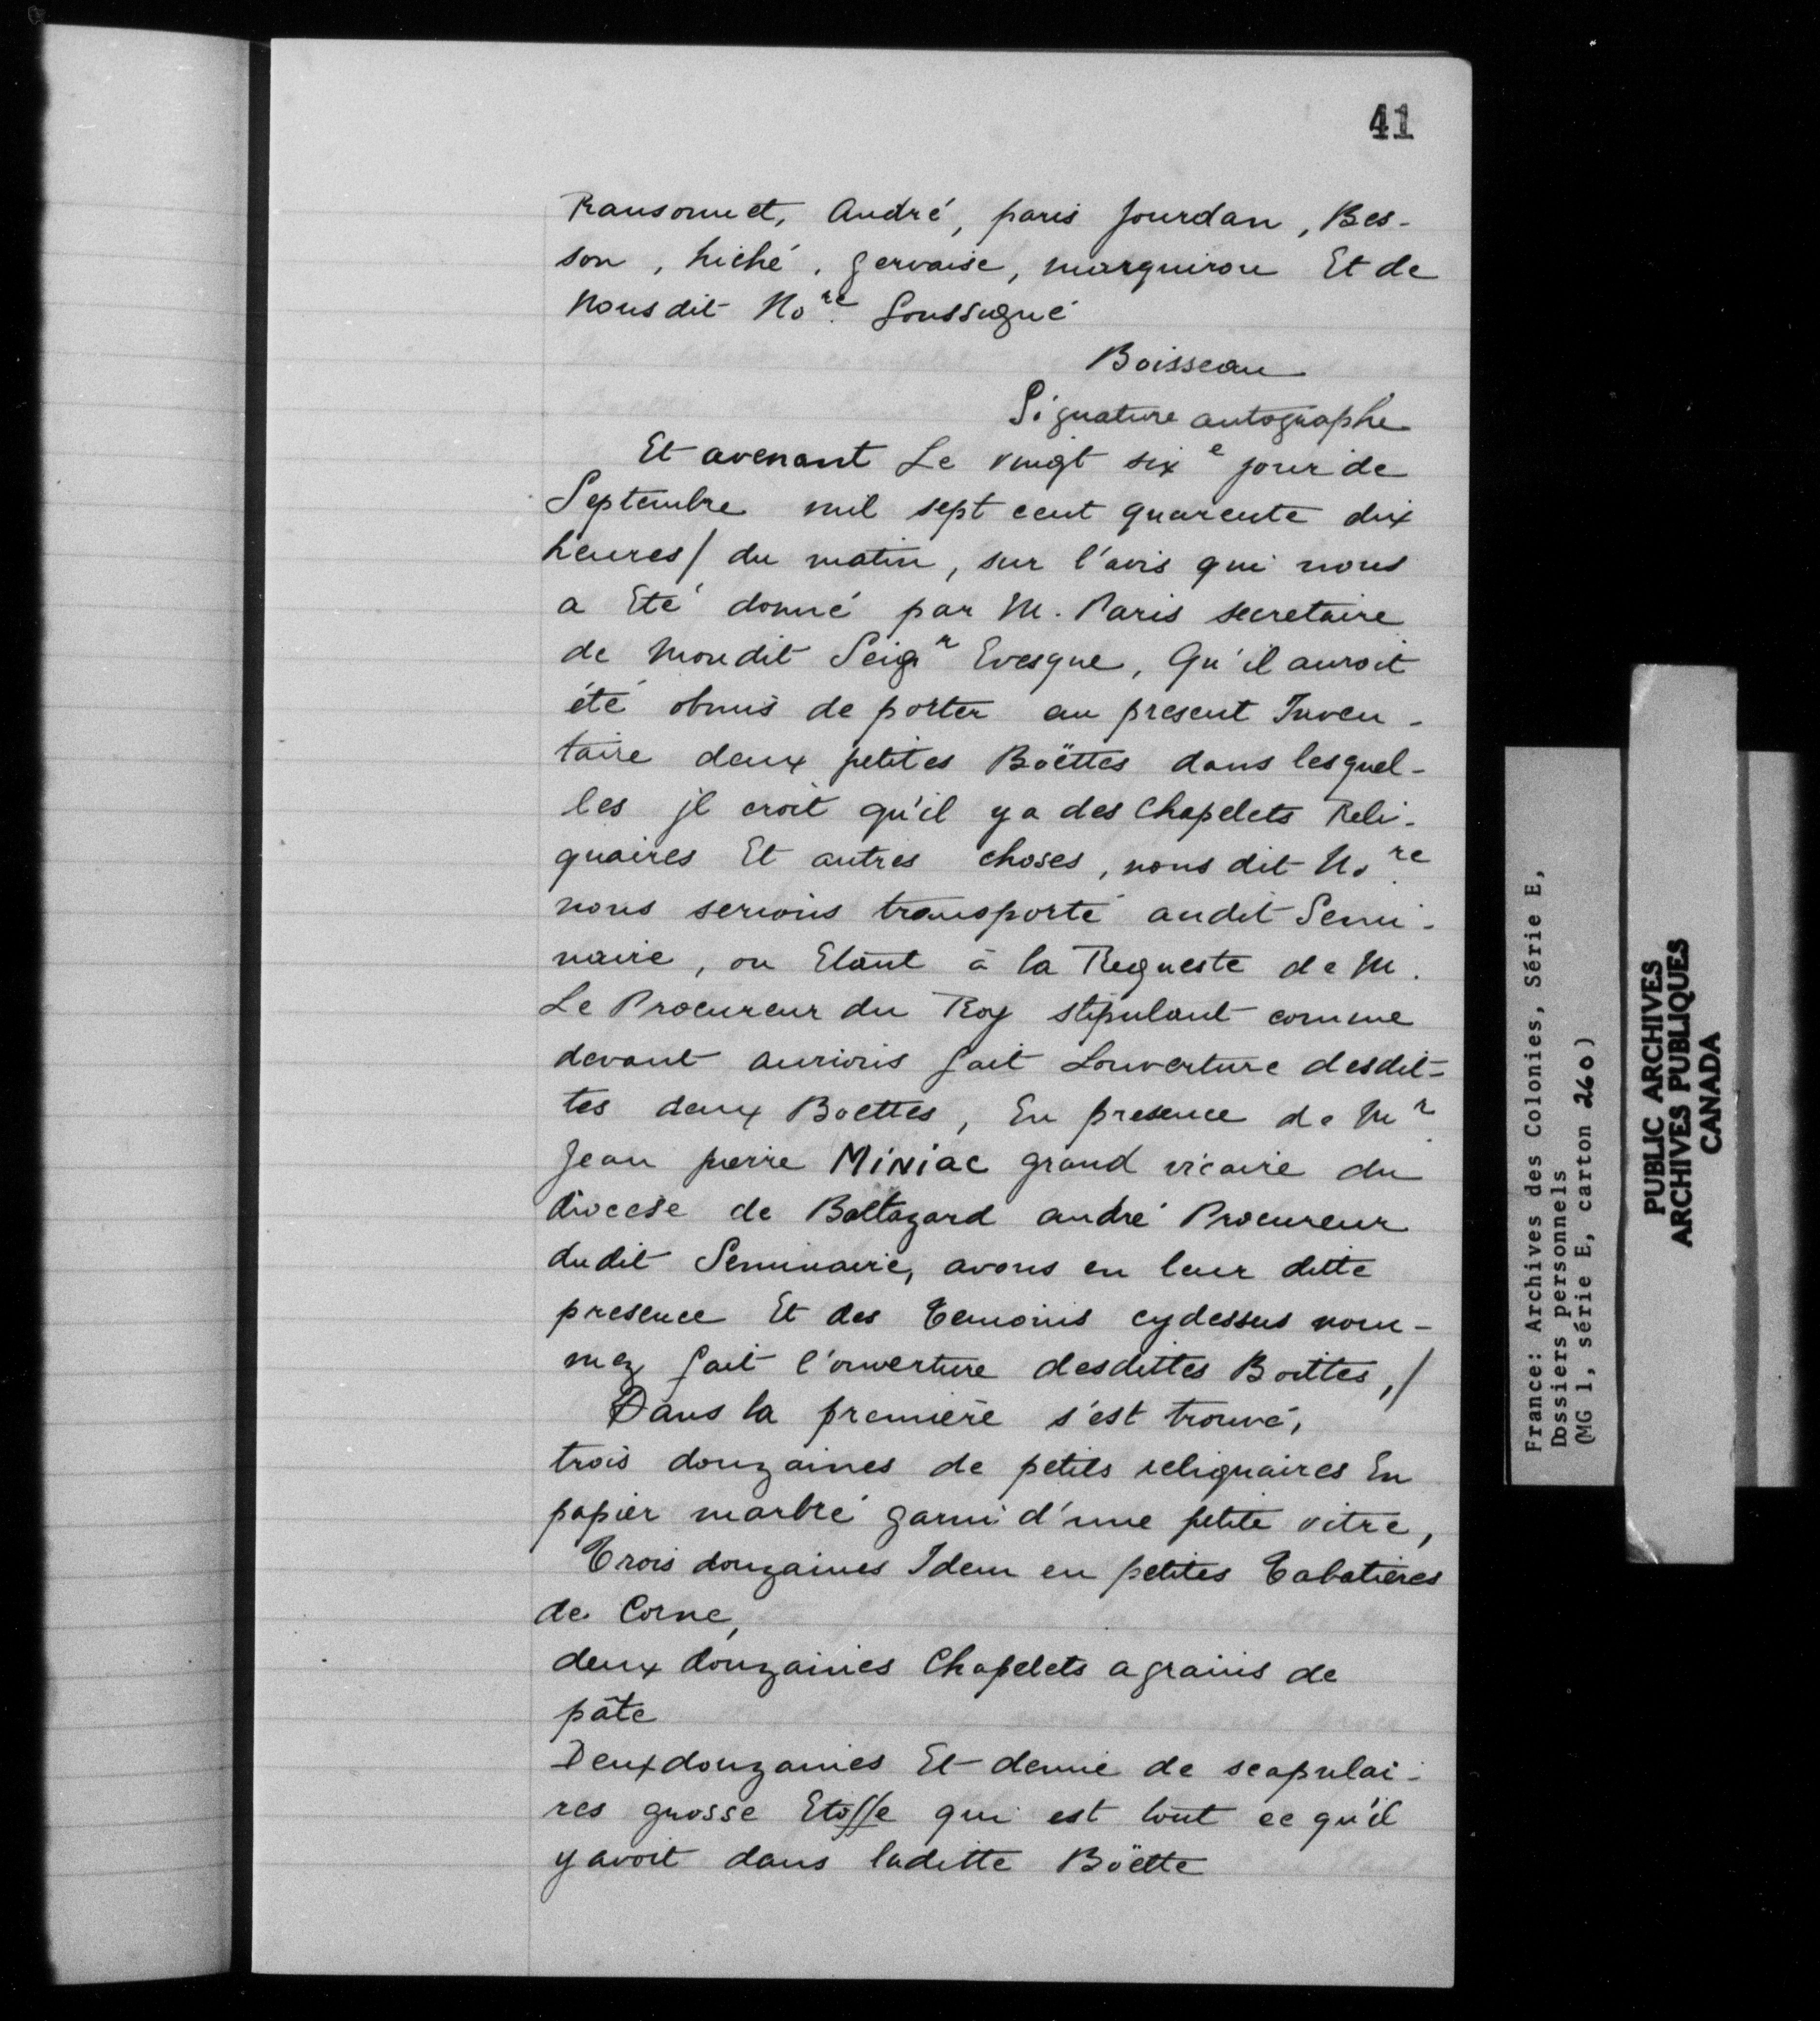 41
Ransonnet, André, paris Jourdan, Bes-
son, hiché, gervaise, marquiron Et de
Nous dit No.re Soussigné
Boisseau
Signature autographe
Et avenant Le vingt six e jour de
Septembre mil sept cent quarente dix
heures/ du matin, sur l'avis qui nous
a Eté donné par M. Paris secretaire
de Mondit Seigr Evesque, Qu'il auroit
été obmis de porter au present Inven-
taire deux petites Boëttes dans lesquel-
les jl croit qu'il y a des Chapelets Reli-
quaires Et autres choses, nous dit No.re
nous serions transporté audit Semi-
naire, ou Etant à la Requeste de M.
Le Procureur du Roy stipulant comme
devant aurions fait Louverture desdit-
tes deux Boettes, En presence de Mr
Jean pierre MiNiac grand vicaire du
diocese de Baltazard andré Procureur
dudit Seminaire, avons en leur ditte
presence Et des Temoins cydessus nom-
mez fait l'ouverture desdittes Boittes,/
Dans la première s'est trouvé,
trois douzaines de petits reliquaires En
papier marbré garni d'une petite vitre,
Trois douzaines Idem en petites Tabatières
de Corne,
deux douzaines Chapelets a grains de
pâte
Deux douzaines Et demie de scapulai-
res grosse Etoffe qui est tout ce qu'il
y avoit dans laditte Boëtte
France: Archives des Colonies, Série E,
Dossiers personnels
(MG 1, série E, carton 260)
PUBLIC ARCHIVES
ARCHIVES PUBLIQUES
CANADA